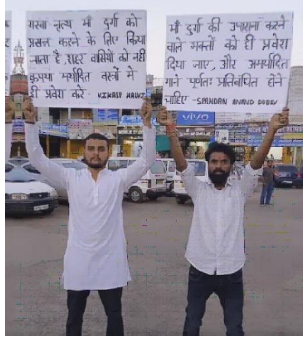 गरबा नृत्य माँ दुर्गा को
प्रसन्न करने के लिए किया
जाता है, शहर वासियों को नहीं
कृपया मर्यादित वस्त्रों में
ही प्रवेश करे
माँ दुर्गा की उपासना करने
वाले भक्तों को ही प्रवेश
दिया जाए, और अमर्यादित
गाने पूर्णतः प्रतिबंधित होने
चाहिए - ANAND DUBEY
vivo